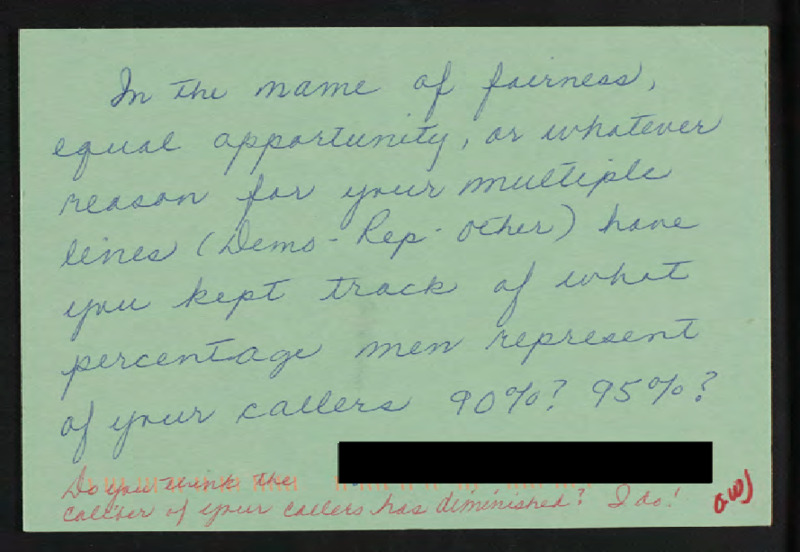 In the name of fairness,
equal opportunity, or whatever
reason for your multiple
lines (Demo - Rep - other) have
you kept track of what
percentage men represent
of your callers 90%? 95%?
Do you think the
caliber of your callers has diminished? I do!